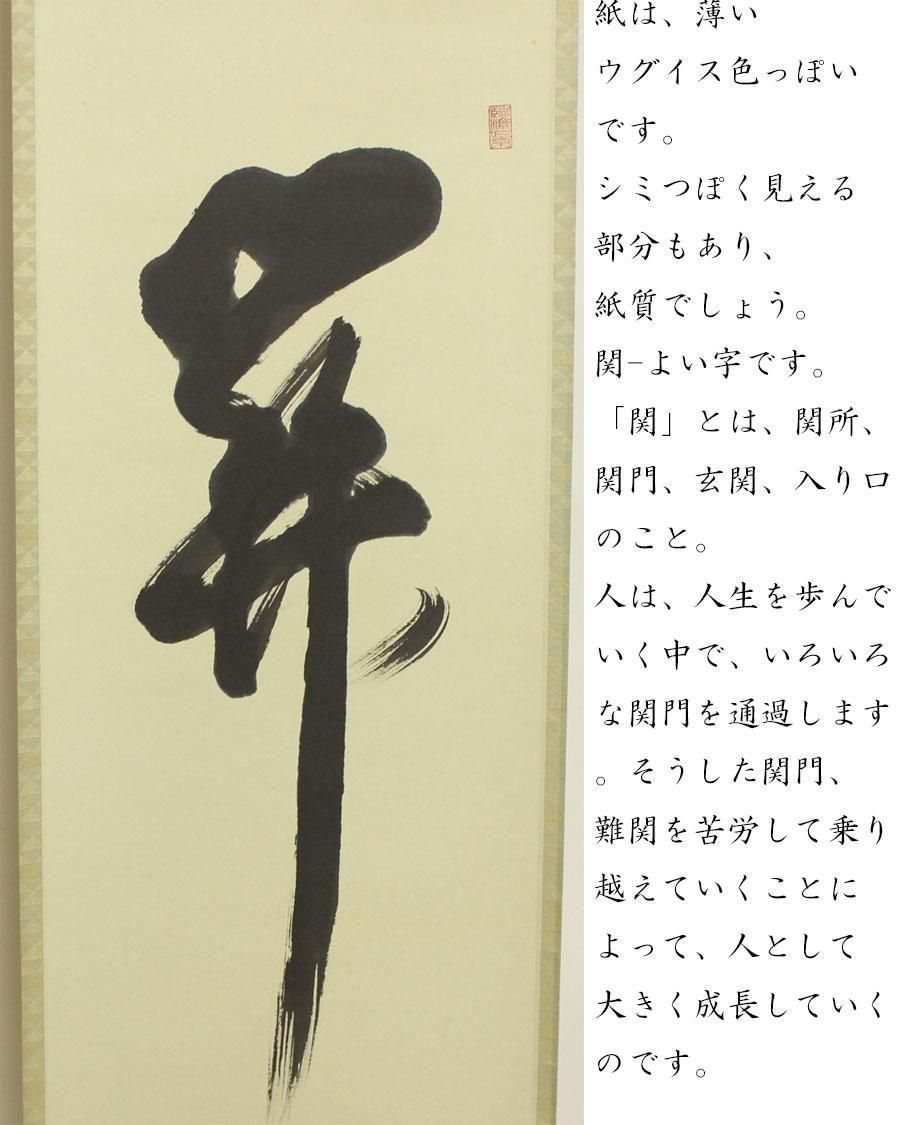 関
紙は、薄い
ウグイス色っぽい
です。
シミつぽく見える
部分もあり、
紙質でしょう。
関-よい字です。
「関」とは、関所、
関門、玄関、入り口
のこと。
人は、人生を歩んで
いく中で、いろいろ
な関門を通過します
。そうした関門、
難関を苦労して乗り
越えていくことに
よって、人として
大きく成長していく
のです。